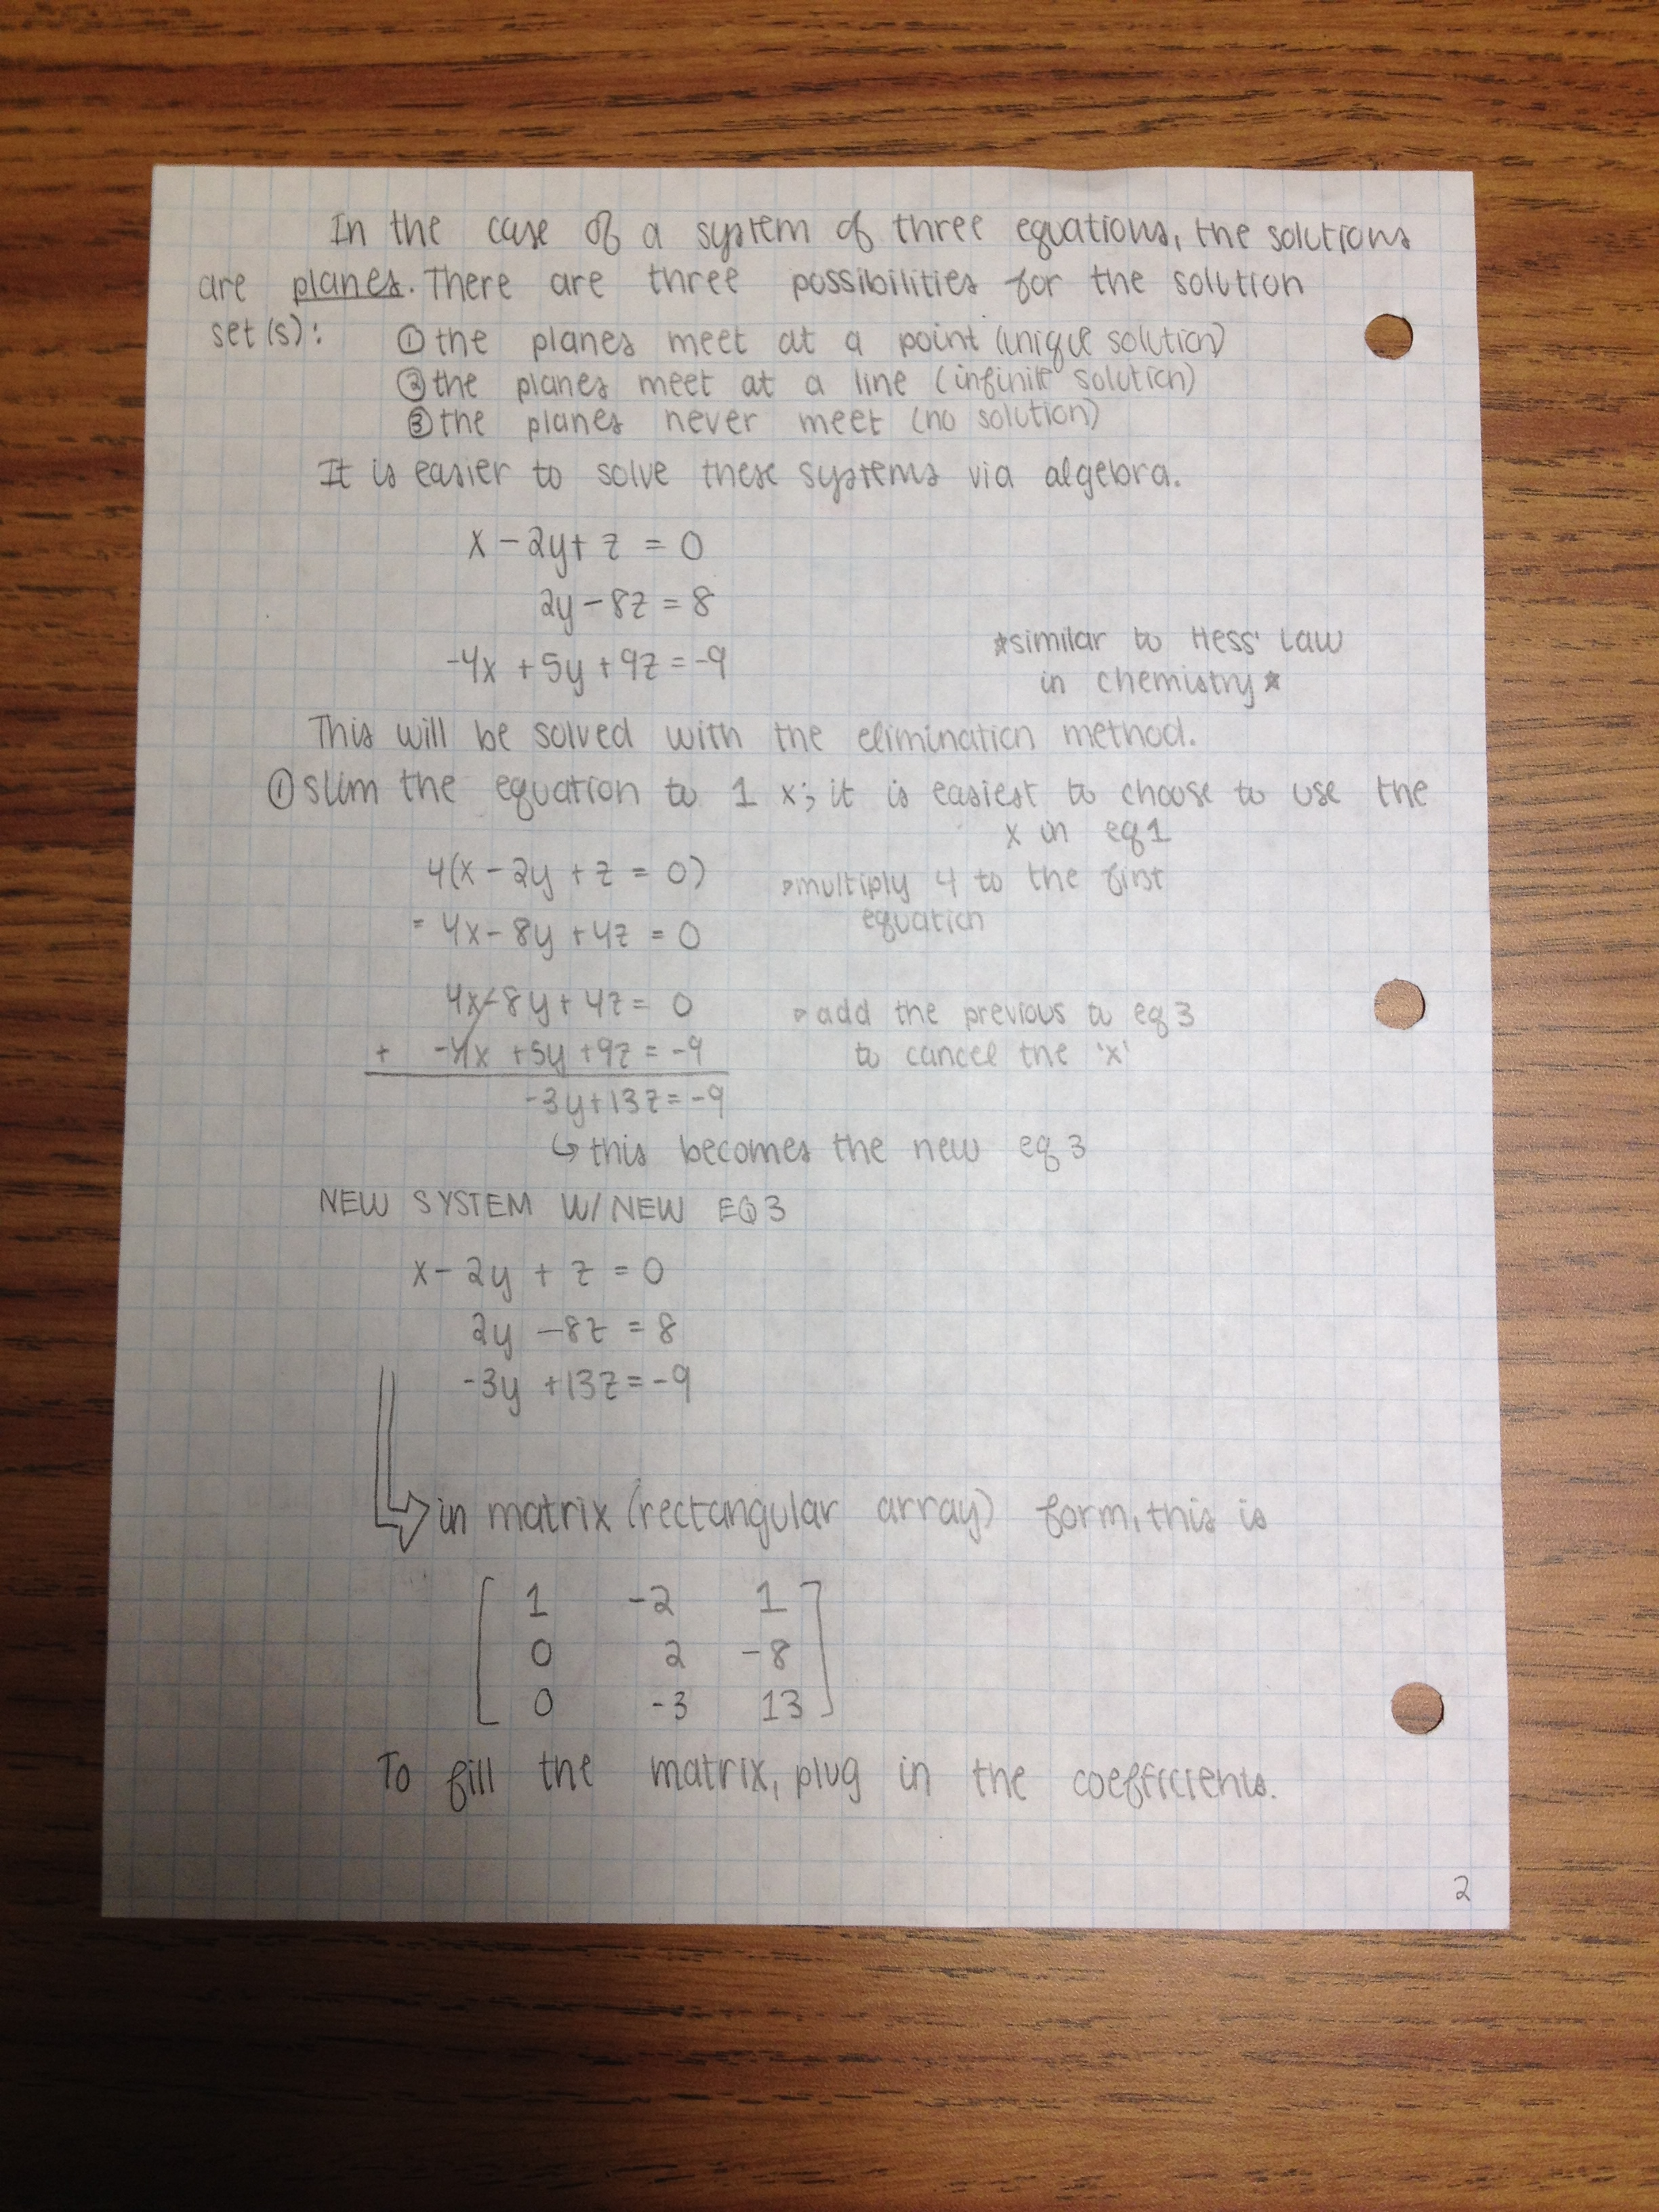 In the case of a system of three equations, the solutions
are planes. There are three possibilities for the solution
set(s): ① the planes meet at a point (unique solution)
② the planes meet at a line (infinite solution)
③ the planes never meet (no solution)
It is easier to solve these systems via algebra.
x - 2y + z = 0
2y - 8z = 8
-4x + 5y + 9z = -9
*similar to Hess' Law
in chemistry*
This will be solved with the elimination method.
① slim the equation to 1 x; it is easiest to choose to use the
x in eq 1
4(x - 2y + z = 0)
= 4x - 8y + 4z = 0
▹multiply 4 to the first
equation
4x - 8y + 4z = 0
+ -4x + 5y + 9z = -9
-3y + 13z = -9
▹add the previous to eq 3
to cancel the 'x'
↳ this becomes the new eq 3
NEW SYSTEM W/ NEW EQ 3
x - 2y + z = 0
2y - 8z = 8
-3y + 13z = -9
⇨ in matrix (rectangular array) form, this is
[ 1 -2 1 ]
[ 0 2 -8 ]
[ 0 -3 13 ]
To fill the matrix, plug in the coefficients.
2